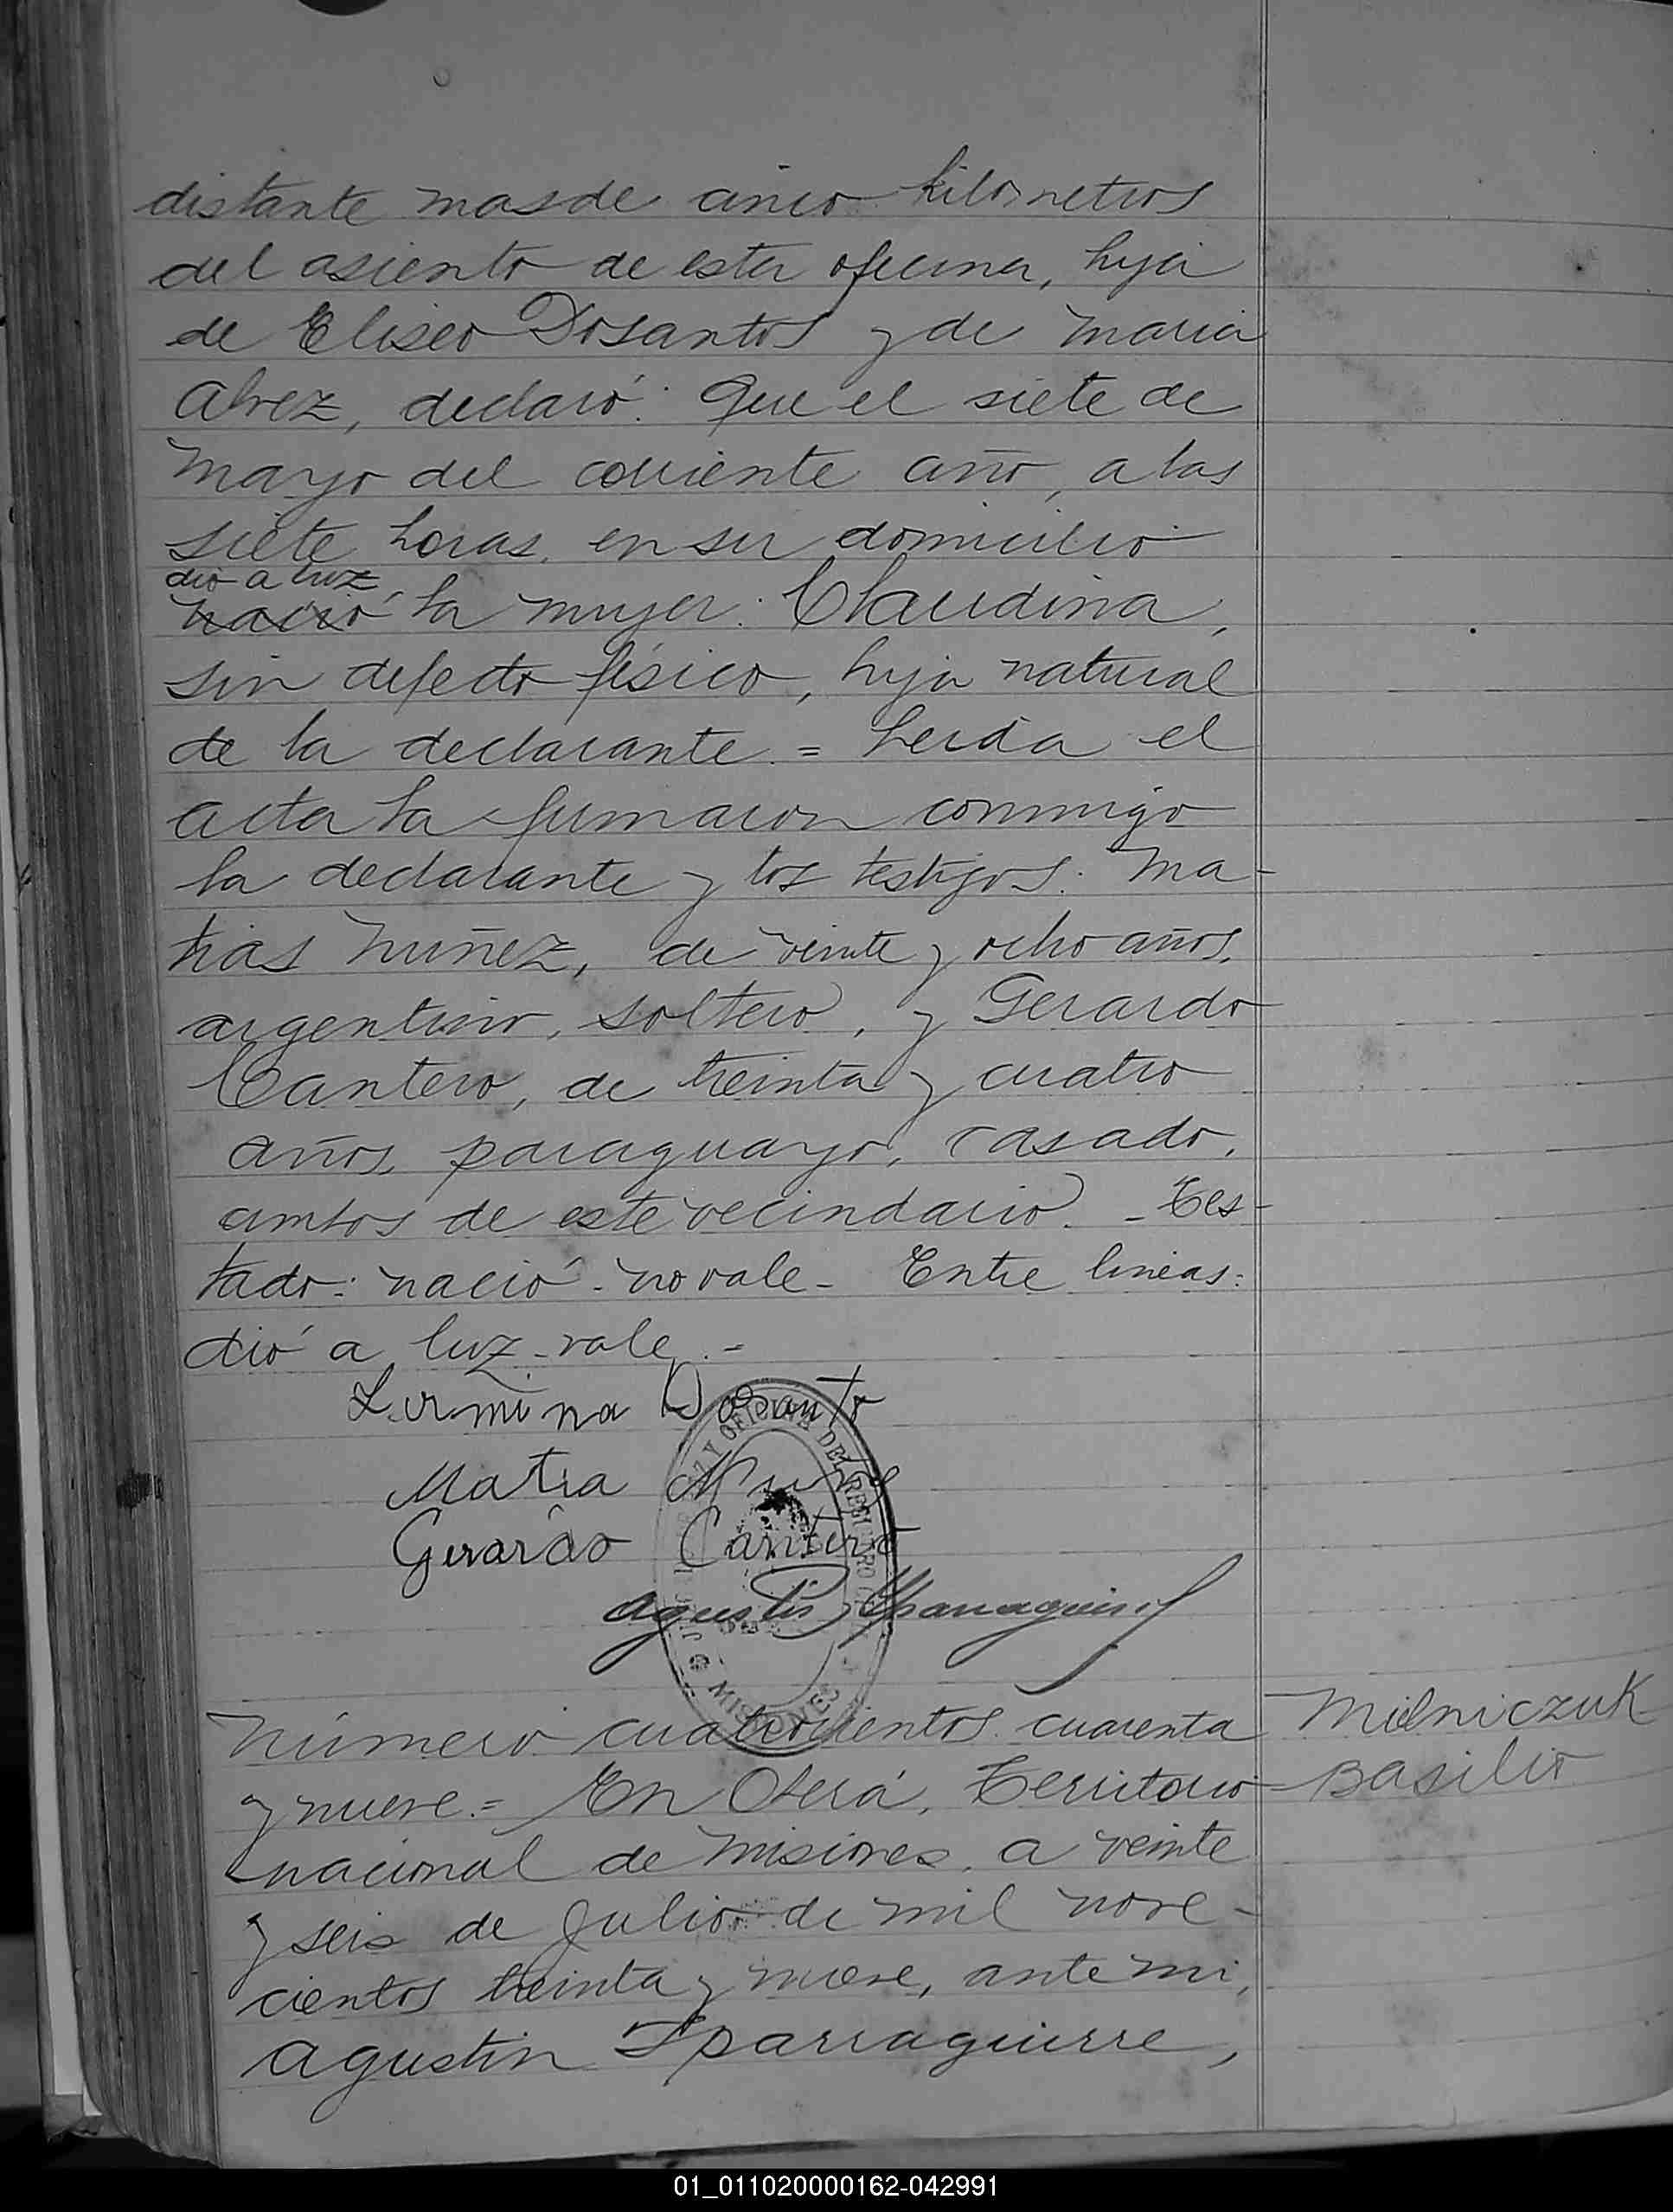 distante mas de cinco kilometros
del asiento de esta oficina, hija
de Eliseo Dosantos y de Maria
Alvez, declaró: Que el siete de
Mayo del corriente año, a las
siete horas, en su domicilio
dio a luz
nació la mujer: Claudina,
sin defecto físico, hija natural
de la declarante. = Leida el
acta la firmaron conmigo
la declarante y los testigos: Ma-
tias Nuñez, de veinte y ocho años,
argentino, soltero, y Gerardo
Cantero, de treinta y cuatro
años, paraguayo, casado,
ambos de este vecindario. - Tes-
tado: nació - no vale - Entre lineas:
dió a luz - vale. =
Lirmina Dosanto
Matia Nuñes
Gerardo Cantero
Agustin Yparraguirre
OFICINA DEL REGISTRO
MISIONES
Número cuatrocientos cuarenta
y nueve. = En Oberá, Territorio
nacional de Misiones, a veinte
y seis de Julio de mil nove-
cientos treinta y nueve, ante mi,
Agustin Yparraguirre,
Mielniczuk
Basilio
01_011020000162-042991